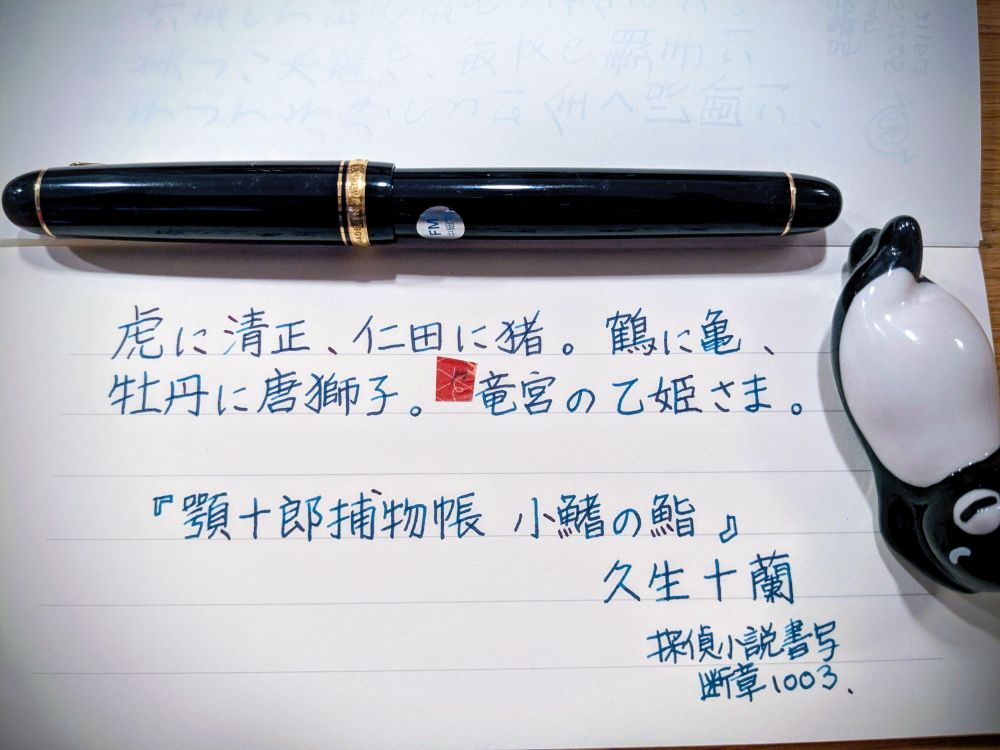 FM
虎に清正、仁田に猪。鶴に亀、
牡丹に唐獅子。竜宮の乙姫さま。
『顎十郎捕物帳 小鰭の鮨』
久生十蘭
探偵小説書写
断章1003.